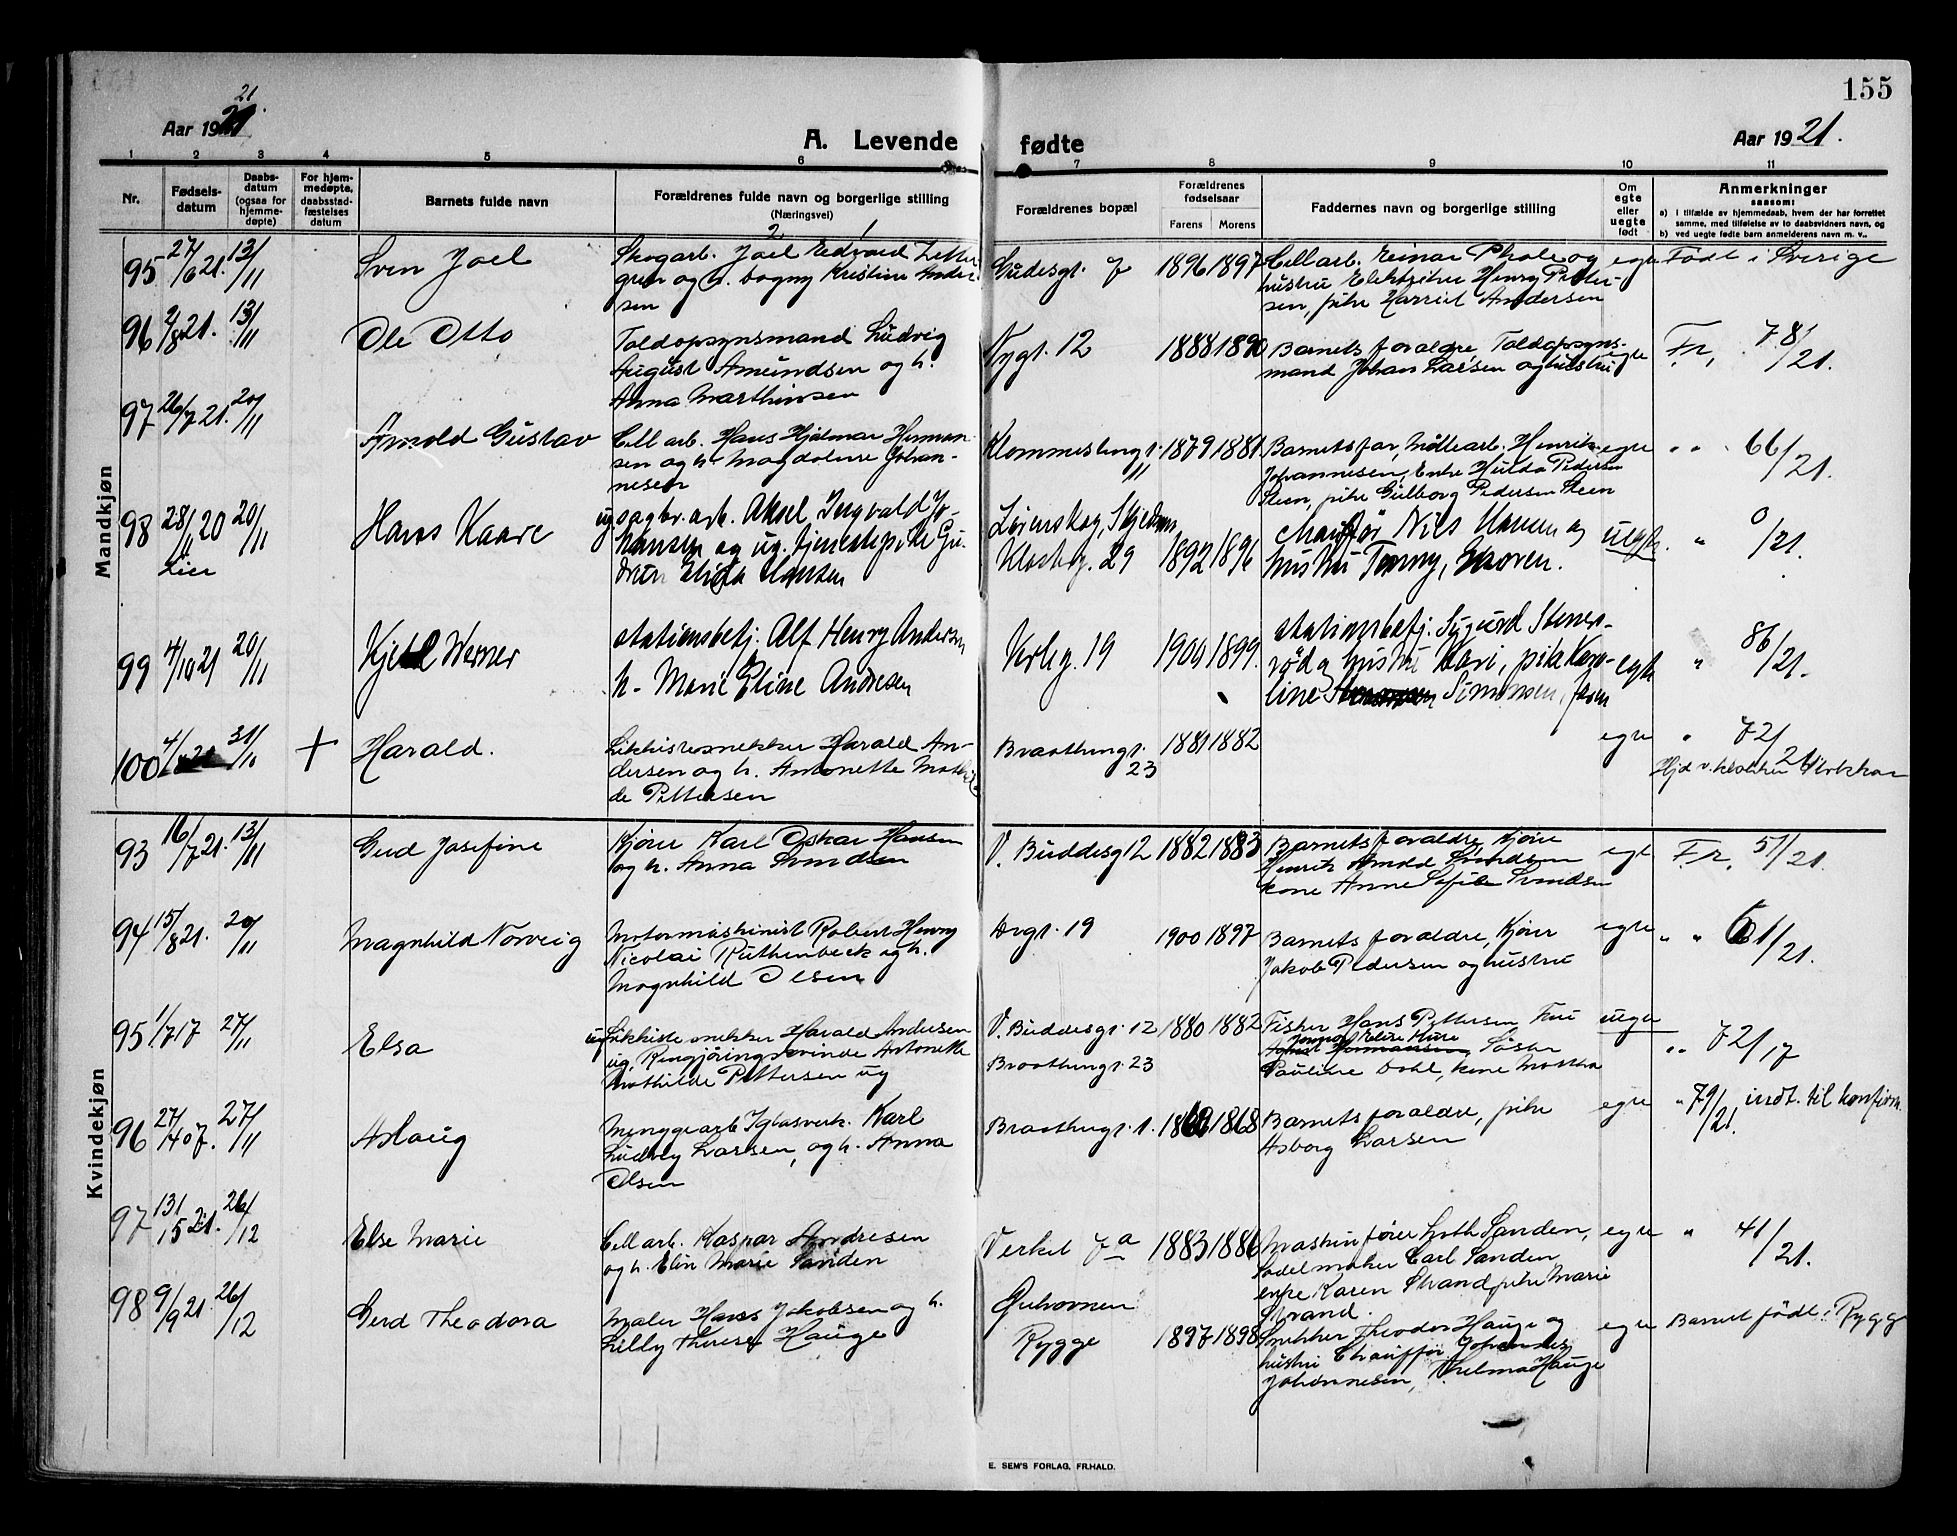 155
21
Aar 1921.
A. Levende fødte
Aar 1921.
1 2 3 4 5 6 7 8 9 10 11
Nr.
Fødsels-
datum
Daabs-
datum
(ogsaa for
hjemme-
døpte)
For hjem-
medøpte,
daabsstad-
fæstelses
datum
Barnets fulde navn
Forældrenes fulde navn og borgerlige stilling
(Næringsvei)
Forældrenes bopæl
Forældrenes
fødselsaar
Farens Morens
Faddernes navn og borgerlige stilling
Om
egte
eller
uegte
født
Anmerkninger
saasom:
a) i tilfælde av hjemmedaab, hvem der har forrettet
samme, med tilføielse av to daabsvidners navn, og
b) ved uegte fødte barn anmelderens navn m. v..
Mandkjøn
95 27/6 21. 13/11 Sven Joel
Skogarb. Joel Edvard Zetter
gren og h. Dagny Kristine Ander
sen
Gudesgt. 7 1896 1897
Cellarb. Einar og
hustru Elektriker Henry Petter-
sen, pike Harriet Andersen
egte Født i Sverige
96 2/8 21. 13/11 Ole Otto
Toldopsynsmand Ludvig
August Amundsen og h.
Anna Marthinsen
Nygt. 12 1888 1890
Barnets forældre, Toldopsyns-
mand Johan Larsen og hustru
egte Fr. 78/21.
97 26/7 21. 20/11 Arnold Gustav
Cellarb. Hans Hjalmar Herman
sen og h. Magdalene Johan-
nesen
Glommestengt. 11 1879 1881
Barnets far, Møllearb. Henrik
Johannesen, Enke Hulda Pedersen
Steen, pike Gulborg Pedersen Steen
egte " " 66/21.
98 28/11 20 20/11 Hans Kaare
Lier
ug sagbr. arb. Aksel Ingvald Jo-
hansen og ug. tjenestepike Gu-
drun Elida Hansen
Lørenskog,
Klosterg. 29 1892 1896
Chauffør Nils Hansen og
hustru Jenny, moren.
uegte. " 0/21.
99 4/10 21 20/11 Kjell Werner
stationsbetj. Alf Henry Andersen
h. Marie Eline Andresen
Verksg. 19 1900 1899.
stationsbetj. Sigurd Stener-
rød og hustru Kari, pike Karo-
line Simonsen, faren
egte " 86/21.
100 4/ 21 31/10 + Harald.
Likkistesnekker Harald An-
dersen og h. Antonette Mathil
de Pettersen
Braathengt. 23 1881 1882
egte " 72/21
Hjd v. klokker
Kvindekjøn
93 16/7 21. 13/11 Gerd Josefine
Kjører Karl Oskar Hansen
og h. Anna Svendsen
V. Buddesg 12 1882 1883
Barnets forældre, Kjører
Henrik Arnold Svendsen
kone Anne Sofie Svendsen
egte Fr. 51/21.
94 15/8 21. 20/11 Magnhild Norveig
Motormaskinist Robert Henry
Nicolai Ruthenbeck og h.
Magnhild Olsen
Argt. 19 1900 1897
Barnets forældre, Kjører
Jakob Pedersen og hustru
egte " " 61/21.
95 1/7 17 27/11 Elsa
ug Likkiste snekker Harald Andersen
ug. Rengjøringskvinde Antonette
Mathilde Pettersen ug
V. Buddesgt. 12
Braathengt. 23 1880 1882
Fisker Hans Pettersen Fru
Pauline Dahl, kone Martha
uegte " 72/17
96 27/4 07. 27/11 Aslaug
Menggearb Iglasverk. Karl
Ludvig Larsen, og h. Anna
Olsen
Braathengt. 1. 1868
Barnets forældre, pike
Asborg Larsen
egte " 79/21. indt. til konfirm.
97 131/5 21. 26/12 Else Marie
Cellarb. Kaspar Andresen
og h. Elin Marie Sanden
Verket 7 a 1883 1886
Maskinfører Sanden,
Sadelmaker Carl Sanden
enke Karen Strand pike Marie
Strand.
egte " 41/21.
98 9/9 21. 26/12 Gerd Theodora
Maler Hans Jakobsen og h.
Lilly Therese Hauge
Rygge 1897 1898
Snekker Theodor Hauge og
hustru Chauffør Johannes
Johannesen, Thelma Hauge
egte Barnet født i Rygge
E. SEM'S FORLAG, FR.HALD.